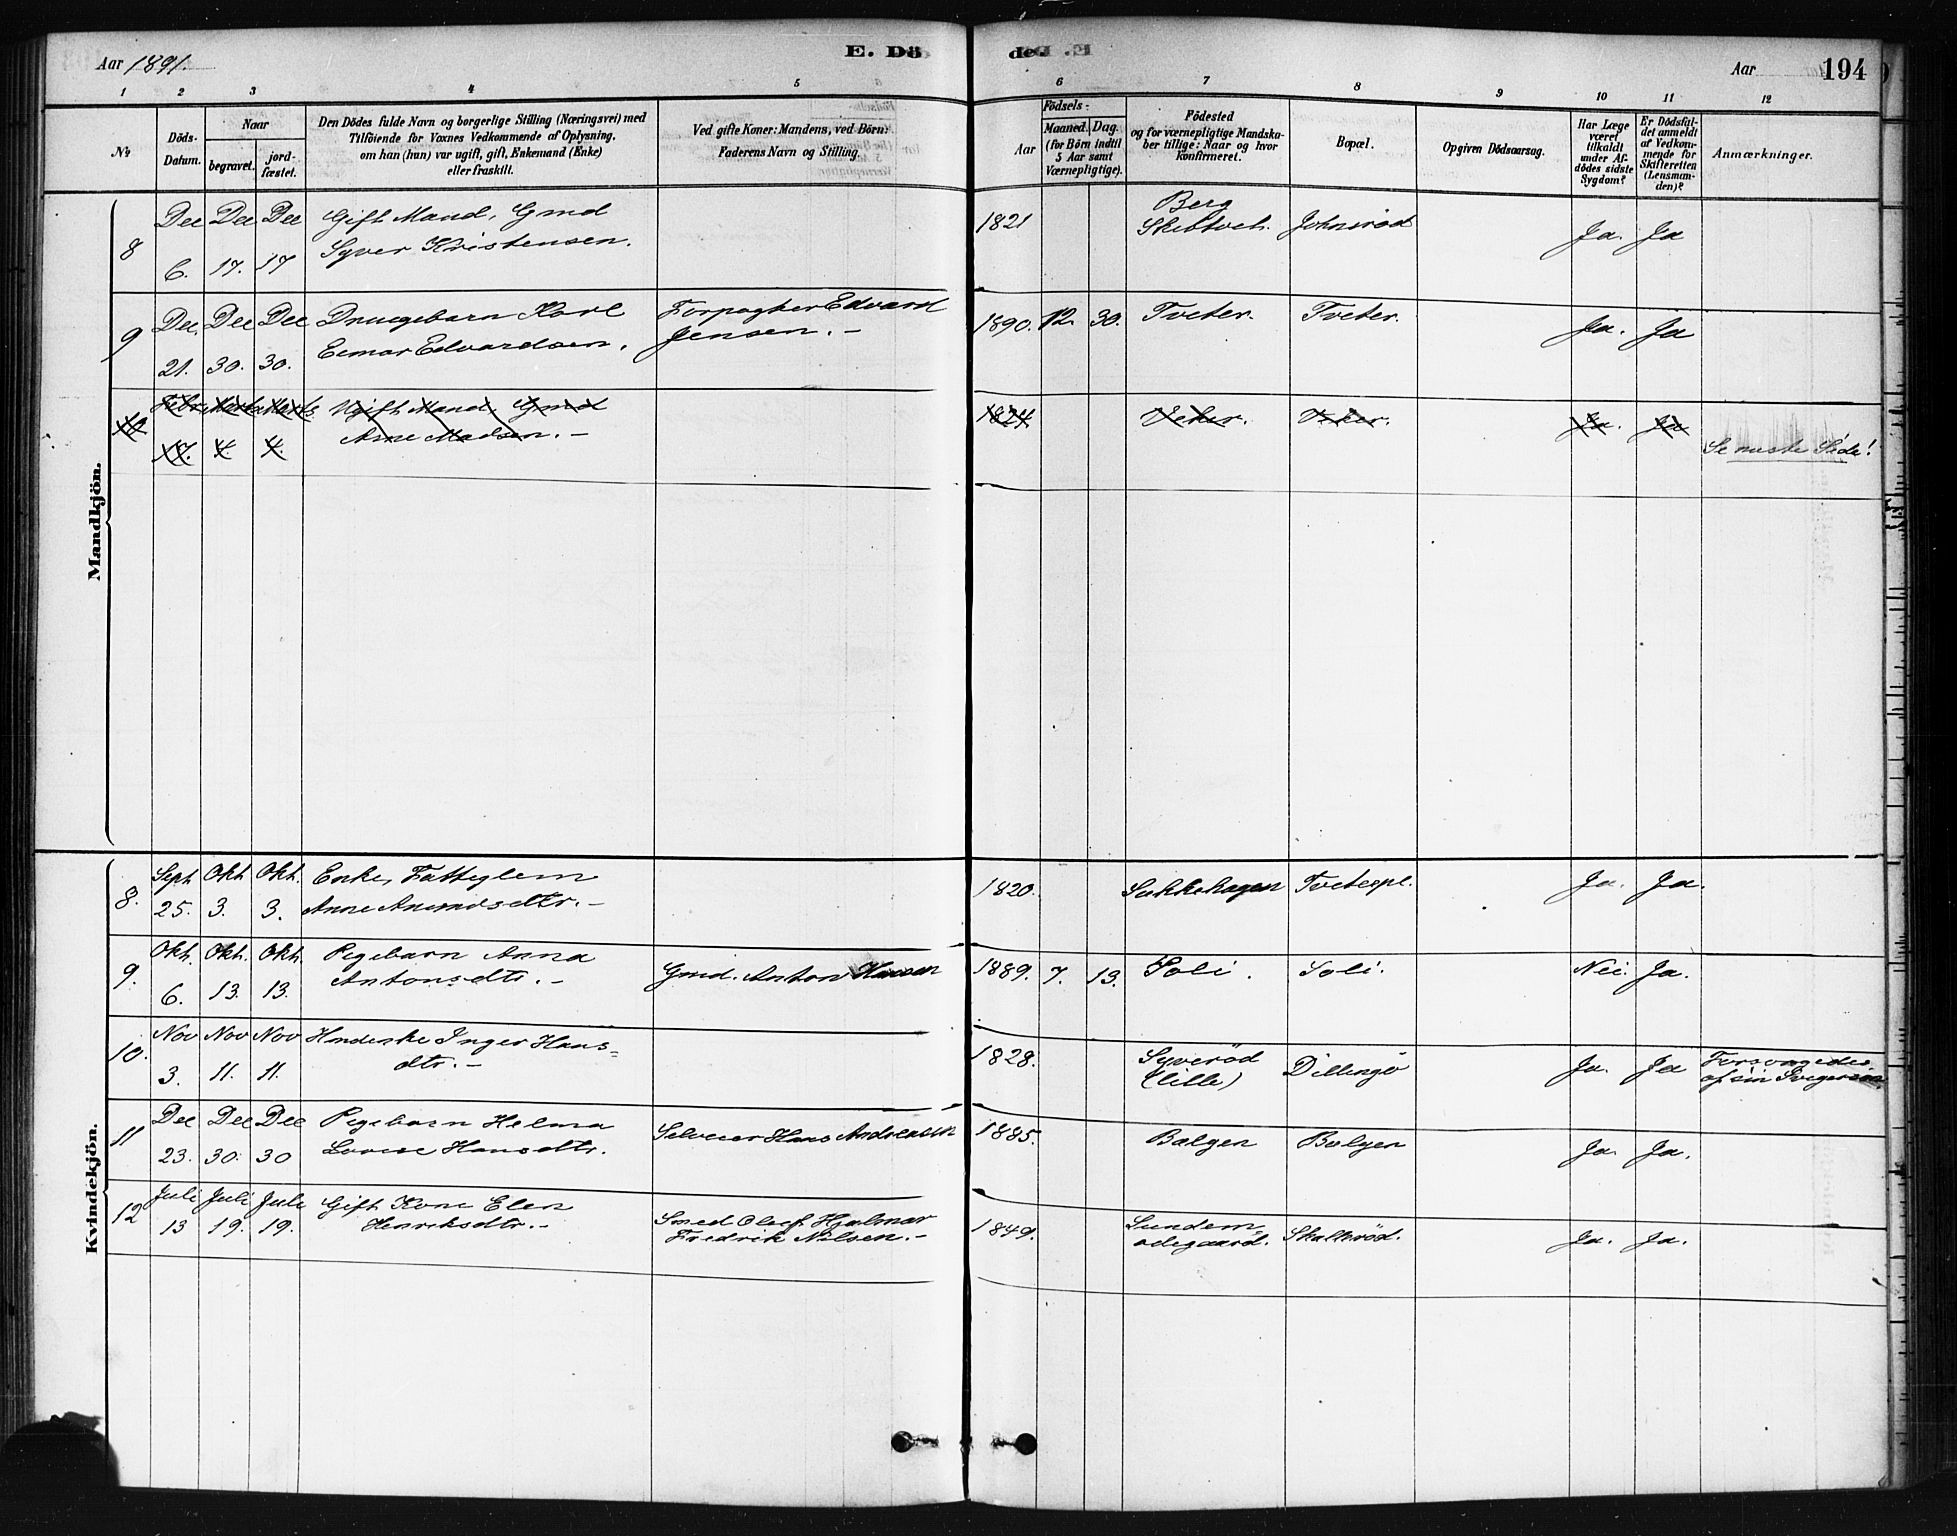 Aar 1891.
E. Dö
de
Aar
194
1 2 3 4 5 6 7 8 9 10 11 12
№
Döds-
Datum.
Naar
begravet.
jord-
fæstet.
Den Dödes fulde Navn og borgerlige Stilling (Næringsvei) med
Tilföiende for Voxnes Vedkommende af Oplysning,
om han (hun) var ugift, gift, Enkemand (Enke)
eller fraskilt.
Ved gifte Koner: Mandens, ved Börn:
Faderens Navn og Stilling.
Födsels-
Aar
Maaned. Dag.
(for Börn indtil
5 Aar samt
Værnepligtige).
Födested
og for værnepligtige Mandska-
ber tillige: Naar og hvor
konfirmeret.
Bopæl.
Opgiven Dödsaarsag.
Har Læge
været
tilkaldt
under Af-
dödes sidste
Sygdom?
Er Dödsfal-
det anmeldt
af Vedkom-
mende for
Skifteretten
(Lensman-
den)?
Anmærkninger.
Mandkjön.
8 Dec Dec Dec Gift Mand, Gmd 1821 Berg
6. 17. 17 Syver Kristensen. Johnsrød Ja. Ja
9 Dec Dec Dec Drengebarn Karl Forpagter Edvard 1890. 12. 30. Tveter. Tveter. Ja. Ja
21. 30. 30. Edvardsen. Jensen. –
Febr. Marts Marts Ugift Mand, Gmd 1824
17. 4. 4. Arne Madsen. – Ja. Ja
Se næste Side!
Kvindekjön.
8. Sept Okt Okt. Enke, Fattiglem 1820. Sukkehagen Tvetespl. Ja. Ja.
25. 3. 3. Anne
9. Okt. Okt. Okt. Pigebarn Anna Gmd. Anton Hansen 1889. 7. 13. Soli. Soli. Nei. Ja.
6. 13. 13. Antonsdtr. –
10. Nov Nov Nov Inger Hans= 1828. Syverød Dillingø Ja. Ja Forsørgedes
3. 11. 11. dtr. – (lille) af sin Svigersøn
11 Dec Dec Dec Pigebarn Helma Selveier Hans Andreassen 1885. Bølgen Bølgen Ja. Ja.
23. 30. 30 Lovise Hansdtr.
12 Juli Juli Juli Gift Kone Elen Smed Oluf Hjalmar 1849. Sundem
13 19. 19. Henriksdtr. – Fredrik Nilsen. – ødegaard. Skallerød. Ja. Ja.